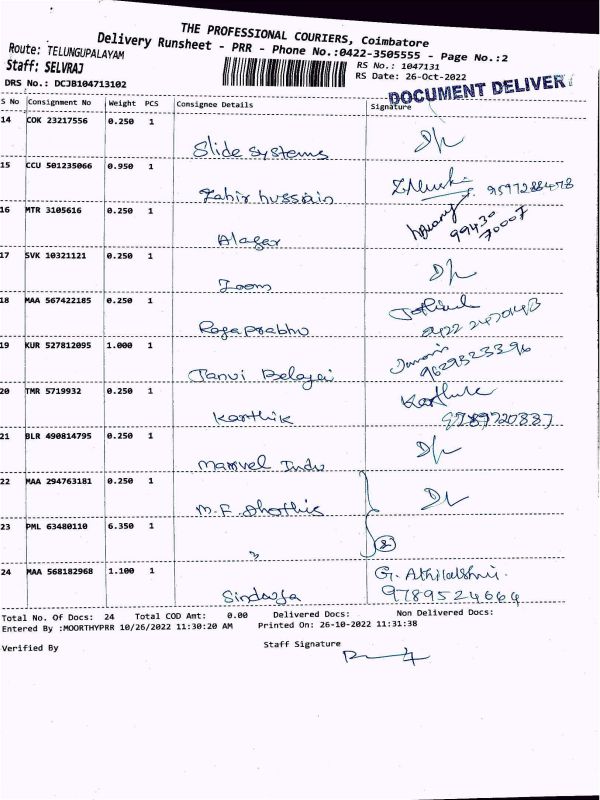 THE PROFESSIONAL COURIERS, Coimbatore
Delivery Runsheet - PRR - Phone No.:0422-3505555 - Page No.:2
Route: TELUNGUPALAYAM
RS No.: 1047131
Staff: SELVRAJ
RS Date: 26-Oct-2022
DRS No.: DCJB104713102
DOCUMENT DELIVER
S No Consignment No Weight PCS Consignee Details Signature
14 COK 23217556 0.250 1
Slide systems
15 CCU 501235066 0.950 1
Zahir hussain 9597288478
16 MTR 3105616 0.250 1
Alagar 99430 70007
17 SVK 10321121 0.250 1
Zoom
18 MAA 567422185 0.250 1
Raga prabhu
19 KUR 527812095 1.000 1
Tanvi 9629323396
20 TMR 5719932 0.250 1
Karthik 9789720887
21 BLR 490814795 0.250 1
Marvel Indu
22 MAA 294763181 0.250 1
M.F.
23 PML 63480110 6.350 1
"
2
24 MAA 568182968 1.100 1
G.
9789524664
Total No. Of Docs: 24 Total COD Amt: 0.00 Delivered Docs: Non Delivered Docs:
Entered By :MOORTHYPRR 10/26/2022 11:30:20 AM Printed On: 26-10-2022 11:31:38
Verified By Staff Signature